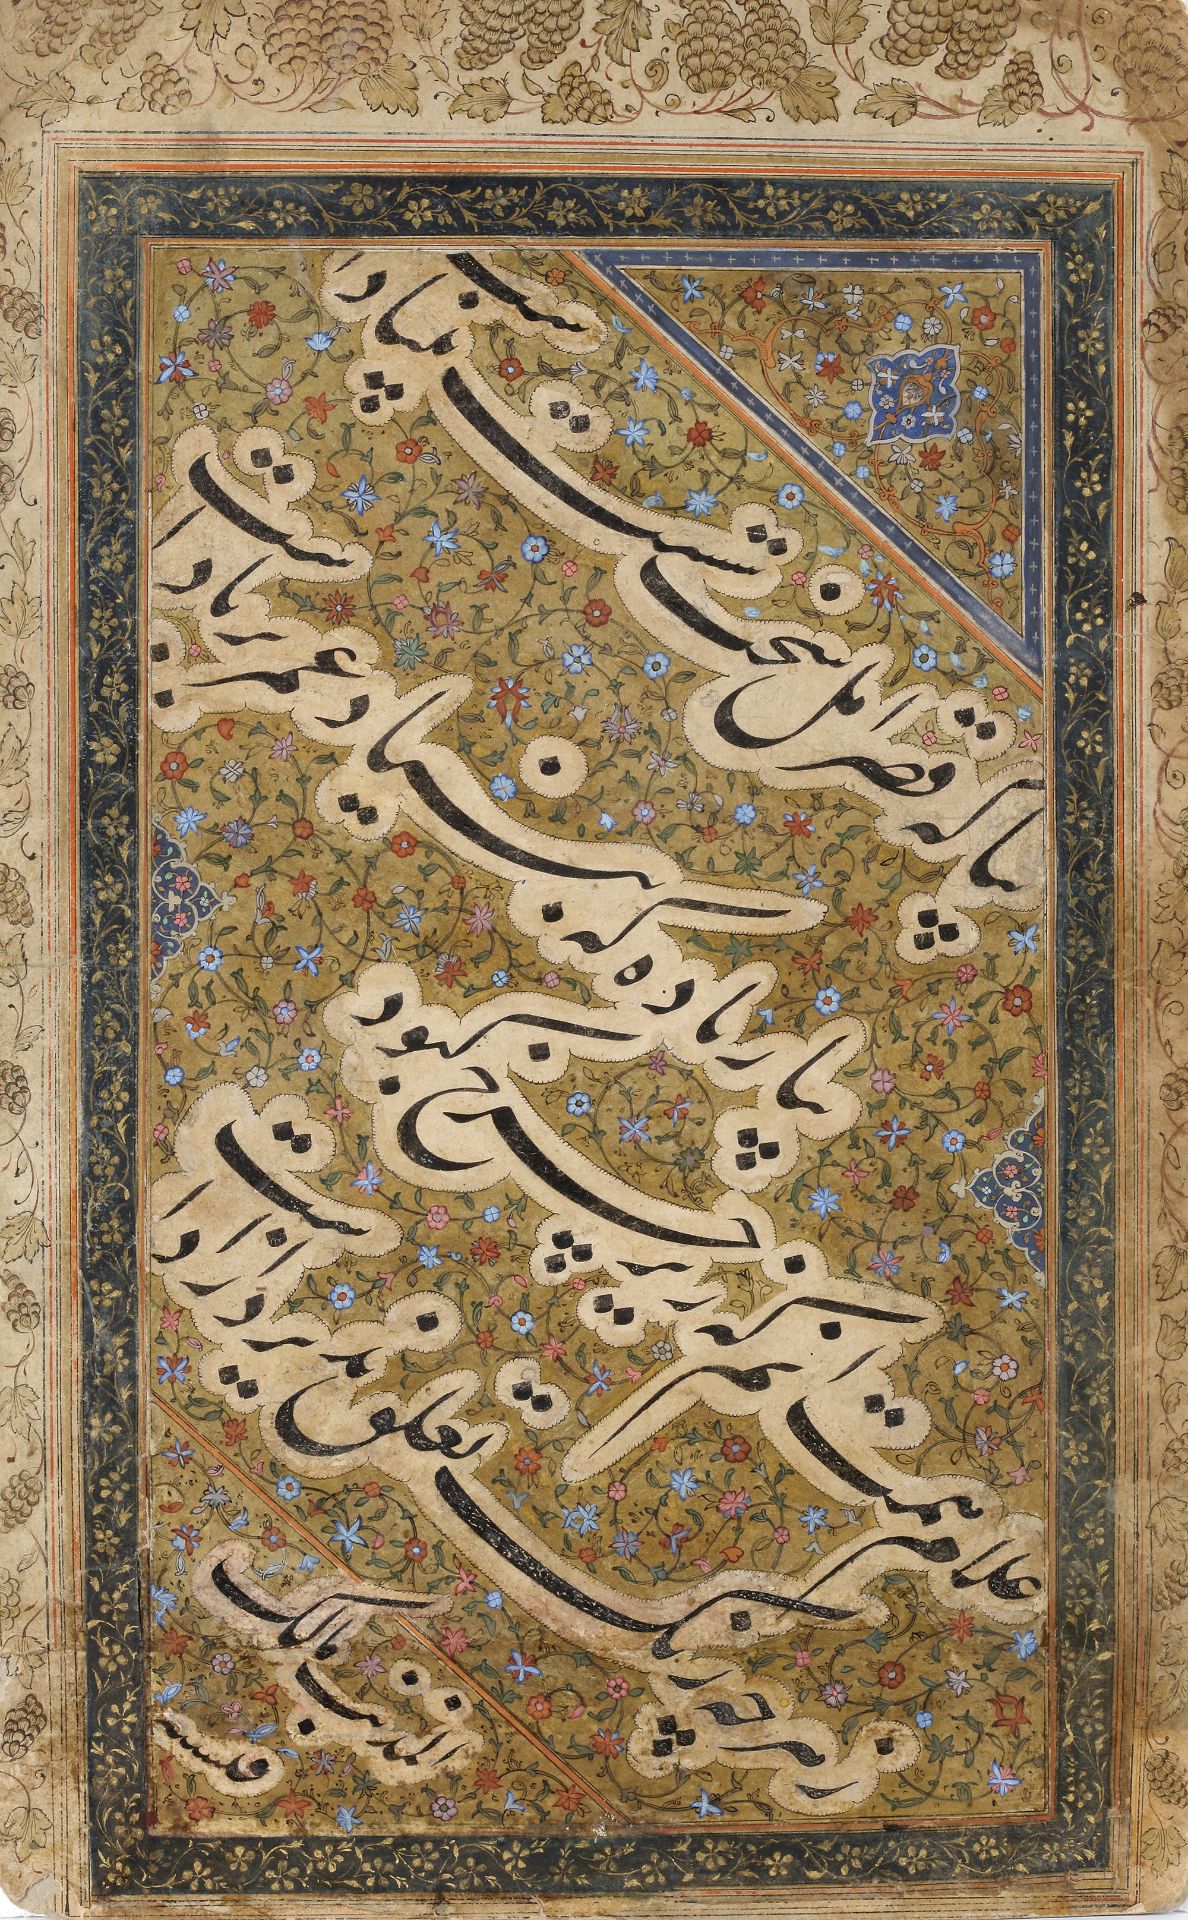 بیا که قصر امل سخت سست بنیادست
بیار باده که بنیاد عمر بر بادست
غلام همت آنم که زیر چرخ کبود
ز هر چه رنک تعلق پذیرد آزادست
المذنب مالک